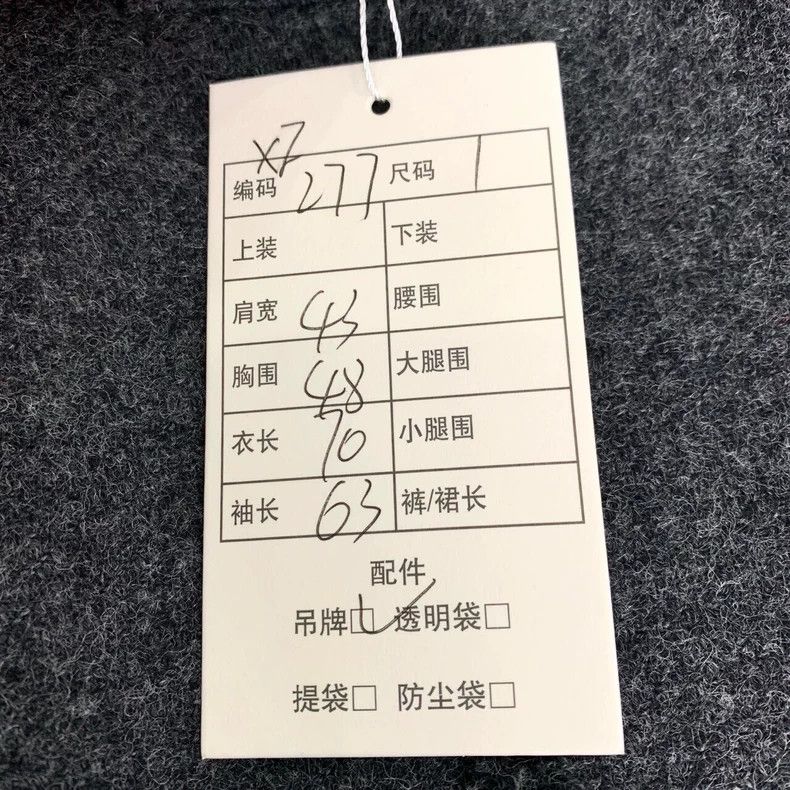 XZ
编码 277 尺码 1
上装 下装
肩宽 43 腰围
胸围 48 大腿围
衣长 70 小腿围
袖长 63 裤/裙长
配件
吊牌☑ 透明袋□
提袋□ 防尘袋□